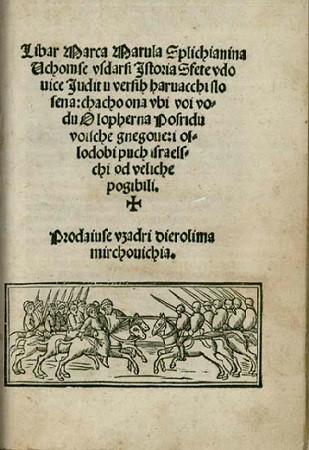 Libar Marca Marula Splichianina
Uchomse usdarsi Istoria Sfete udo
uice Judit u versih haruacchi slo
sena: chacho ona ubi voi vo-
du Olopherna Posridu
voische gnegoue: i os-
lodobi puch israels-
chi od veliche
pogibili.
✠
Prodaiuse uzadri dierolima
mirchouichia.